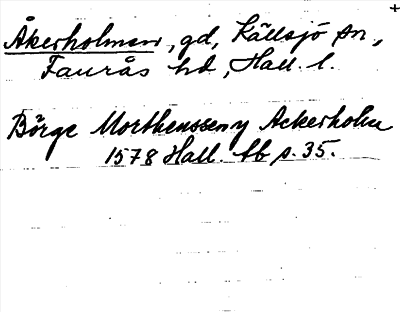 Åkerholmen, gd, Källsjö sn,
Faurås hd, Hall. l.
Börge Morthenssen y Ackerholm
1578 Hall. tb p. 35.